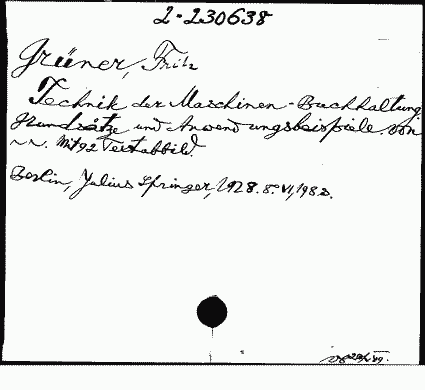 2-230638
Grüner, Fritz
Technik der Maschinen-Buchhaltung
Grundsätze und Anwendungsbeispiele. Von
~ ~. Mit 92 Textabbild.
Berlin, Julius Springer, 1928. 8° VI, 198 S.